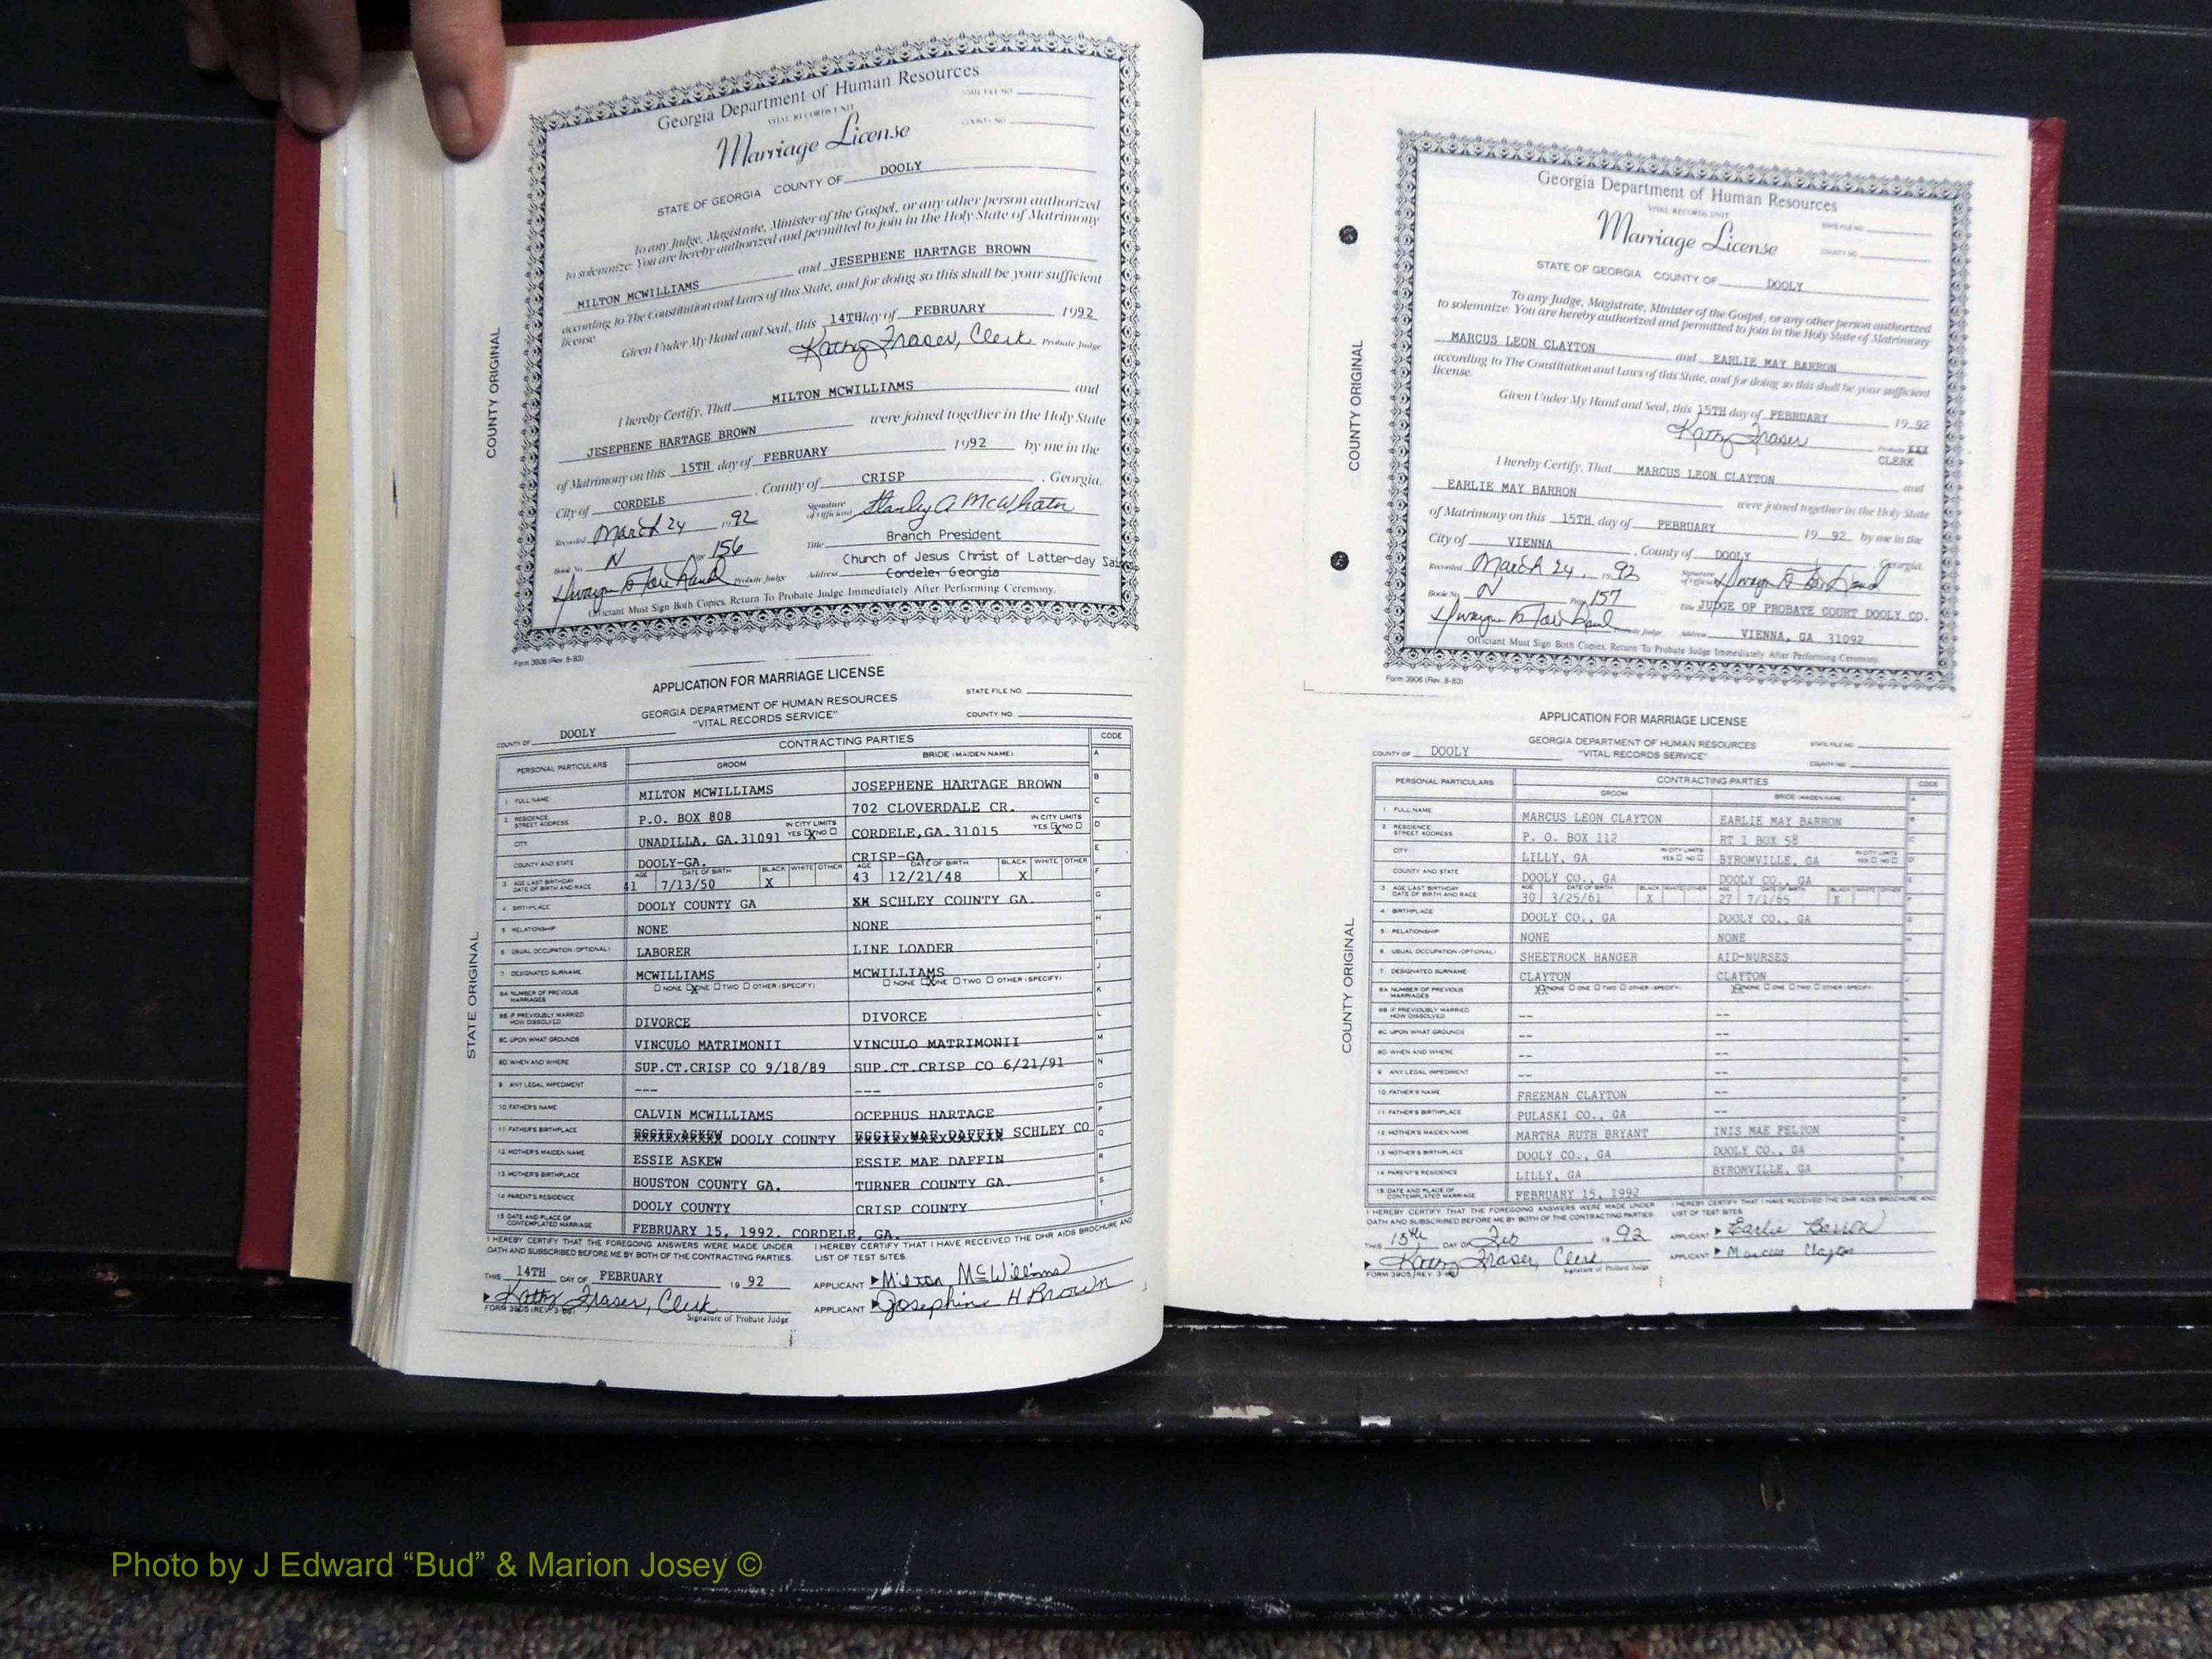 Georgia Department of Human Resources
VITAL RECORDS UNIT
STATE FILE NO.
COUNTY NO.
Marriage License
STATE OF GEORGIA COUNTY OF DOOLY
To any Judge, Magistrate, Minister of the Gospel, or any other person authorized
to solemnize: You are hereby authorized and permitted to join in the Holy State of Matrimony
MILTON MCWILLIAMS and JESEPHENE HARTAGE BROWN
according to The Constitution and Laws of this State, and for doing so this shall be your sufficient
license.
Given Under My Hand and Seal, this 14TH day of FEBRUARY 1992
Kathy Fraser, Clerk Probate Judge
I hereby Certify, That MILTON MCWILLIAMS and
JESEPHENE HARTAGE BROWN were joined together in the Holy State
of Matrimony on this 15TH day of FEBRUARY 1992 by me in the
City of CORDELE, County of CRISP, Georgia.
Recorded March 24 1992 Signature of Officiant Stanley A
Book No. N Page 156 Title Branch President
Probate Judge Address Church of Jesus Christ of Latter-day Sai
Cordele, Georgia
Officiant Must Sign Both Copies. Return To Probate Judge Immediately After Performing Ceremony.
COUNTY ORIGINAL
Form 3906 (Rev. 8-83)
APPLICATION FOR MARRIAGE LICENSE
GEORGIA DEPARTMENT OF HUMAN RESOURCES
"VITAL RECORDS SERVICE"
STATE FILE NO.
COUNTY NO.
COUNTY OF DOOLY
PERSONAL PARTICULARS CONTRACTING PARTIES CODE
GROOM BRIDE (MAIDEN NAME)
1 FULL NAME MILTON MCWILLIAMS JOSEPHENE HARTAGE BROWN
2 RESIDENCE: STREET ADDRESS P.O. BOX 808 702 CLOVERDALE CR.
CITY UNADILLA, GA.31091 IN CITY LIMITS YES NO CORDELE,GA.31015 IN CITY LIMITS YES NO
COUNTY AND STATE DOOLY-GA. CRISP-GA.
3 AGE LAST BIRTHDAY DATE OF BIRTH AND RACE AGE 41 DATE OF BIRTH 7/13/50 BLACK X WHITE OTHER AGE 43 DATE OF BIRTH 12/21/48 BLACK X WHITE OTHER
4 BIRTHPLACE DOOLY COUNTY GA SCHLEY COUNTY GA.
5 RELATIONSHIP NONE NONE
6 USUAL OCCUPATION (OPTIONAL) LABORER LINE LOADER
7 DESIGNATED SURNAME MCWILLIAMS MCWILLIAMS
8A NUMBER OF PREVIOUS MARRIAGES NONE ONE TWO OTHER (SPECIFY) NONE ONE TWO OTHER (SPECIFY)
8B IF PREVIOUSLY MARRIED HOW DISSOLVED DIVORCE DIVORCE
8C UPON WHAT GROUNDS VINCULO MATRIMONII VINCULO MATRIMONII
8D WHEN AND WHERE SUP.CT.CRISP CO 9/18/89 SUP.CT.CRISP CO 6/21/91
9 ANY LEGAL IMPEDIMENT --- ---
10 FATHER'S NAME CALVIN MCWILLIAMS OCEPHUS HARTAGE
11 FATHER'S BIRTHPLACE DOOLY COUNTY SCHLEY CO
12 MOTHER'S MAIDEN NAME ESSIE ASKEW ESSIE MAE DAFFIN
13 MOTHER'S BIRTHPLACE HOUSTON COUNTY GA. TURNER COUNTY GA.
14 PARENT'S RESIDENCE DOOLY COUNTY CRISP COUNTY
15 DATE AND PLACE OF CONTEMPLATED MARRIAGE FEBRUARY 15, 1992. CORDELE, GA.
A
B
C
D
E
F
G
H
I
J
K
L
M
N
O
P
Q
R
S
T
I HEREBY CERTIFY THAT THE FOREGOING ANSWERS WERE MADE UNDER
OATH AND SUBSCRIBED BEFORE ME BY BOTH OF THE CONTRACTING PARTIES.
I HEREBY CERTIFY THAT I HAVE RECEIVED THE DHR AIDS BROCHURE AND
LIST OF TEST SITES
THIS 14TH DAY OF FEBRUARY 19 92
Kathy Fraser, Clerk
Signature of Probate Judge
APPLICANT Milton McWilliams
APPLICANT Josephine H Brown
STATE ORIGINAL
Georgia Department of Human Resources
VITAL RECORDS UNIT
STATE FILE NO.
COUNTY NO.
Marriage License
STATE OF GEORGIA COUNTY OF DOOLY
To any Judge, Magistrate, Minister of the Gospel, or any other person authorized
to solemnize: You are hereby authorized and permitted to join in the Holy State of Matrimony
MARCUS LEON CLAYTON and EARLIE MAY BARRON
according to The Constitution and Laws of this State, and for doing so this shall be your sufficient
license.
Given Under My Hand and Seal, this 15TH day of FEBRUARY 19 92
Kathy Fraser Probate
CLERK
I hereby Certify, That MARCUS LEON CLAYTON and
EARLIE MAY BARRON were joined together in the Holy State
of Matrimony on this 15TH day of FEBRUARY 19 92 by me in the
City of VIENNA, County of DOOLY, Georgia.
Recorded March 24, 1992 Signature of Officiant
Book No. N Page 157 Title JUDGE OF PROBATE COURT DOOLY CO.
Probate Judge Address VIENNA, GA 31092
Officiant Must Sign Both Copies. Return To Probate Judge Immediately After Performing Ceremony.
COUNTY ORIGINAL
Form 3906 (Rev. 8-83)
APPLICATION FOR MARRIAGE LICENSE
GEORGIA DEPARTMENT OF HUMAN RESOURCES
"VITAL RECORDS SERVICE"
STATE FILE NO.
COUNTY NO.
COUNTY OF DOOLY
PERSONAL PARTICULARS CONTRACTING PARTIES CODE
GROOM BRIDE (MAIDEN NAME)
1 FULL NAME MARCUS LEON CLAYTON EARLIE MAY BARRON
2 RESIDENCE: STREET ADDRESS P. O. BOX 112 RT 1 BOX 58
CITY LILLY, GA IN CITY LIMITS YES NO BYROMVILLE, GA IN CITY LIMITS YES NO
COUNTY AND STATE DOOLY CO., GA DOOLY CO., GA
3 AGE LAST BIRTHDAY DATE OF BIRTH AND RACE AGE 30 DATE OF BIRTH 3/25/61 BLACK X WHITE OTHER AGE 27 DATE OF BIRTH 7/1/65 BLACK X WHITE OTHER
4 BIRTHPLACE DOOLY CO., GA DOOLY CO., GA
5 RELATIONSHIP NONE NONE
6 USUAL OCCUPATION (OPTIONAL) SHEETROCK HANGER AID-NURSES
7 DESIGNATED SURNAME CLAYTON CLAYTON
8A NUMBER OF PREVIOUS MARRIAGES NONE ONE TWO OTHER (SPECIFY) NONE ONE TWO OTHER (SPECIFY)
8B IF PREVIOUSLY MARRIED HOW DISSOLVED -- --
8C UPON WHAT GROUNDS -- --
8D WHEN AND WHERE -- --
9 ANY LEGAL IMPEDIMENT -- --
10 FATHER'S NAME FREEMAN CLAYTON --
11 FATHER'S BIRTHPLACE PULASKI CO., GA
12 MOTHER'S MAIDEN NAME MARTHA RUTH BRYANT INIS MAE FELTON
13 MOTHER'S BIRTHPLACE DOOLY CO., GA DOOLY CO., GA
14 PARENT'S RESIDENCE LILLY, GA BYROMVILLE, GA
15 DATE AND PLACE OF CONTEMPLATED MARRIAGE FEBRUARY 15, 1992
I HEREBY CERTIFY THAT THE FOREGOING ANSWERS WERE MADE UNDER
OATH AND SUBSCRIBED BEFORE ME BY BOTH OF THE CONTRACTING PARTIES
I HEREBY CERTIFY THAT I HAVE RECEIVED THE DHR AIDS BROCHURE AND
LIST OF TEST SITES
THIS 15th DAY OF Feb 19 92
Kathy Fraser, Clerk
Signature of Probate Judge
APPLICANT Earlie Barron
APPLICANT Marcus Clayton
COUNTY ORIGINAL
Photo by J Edward “Bud” & Marion Josey ©